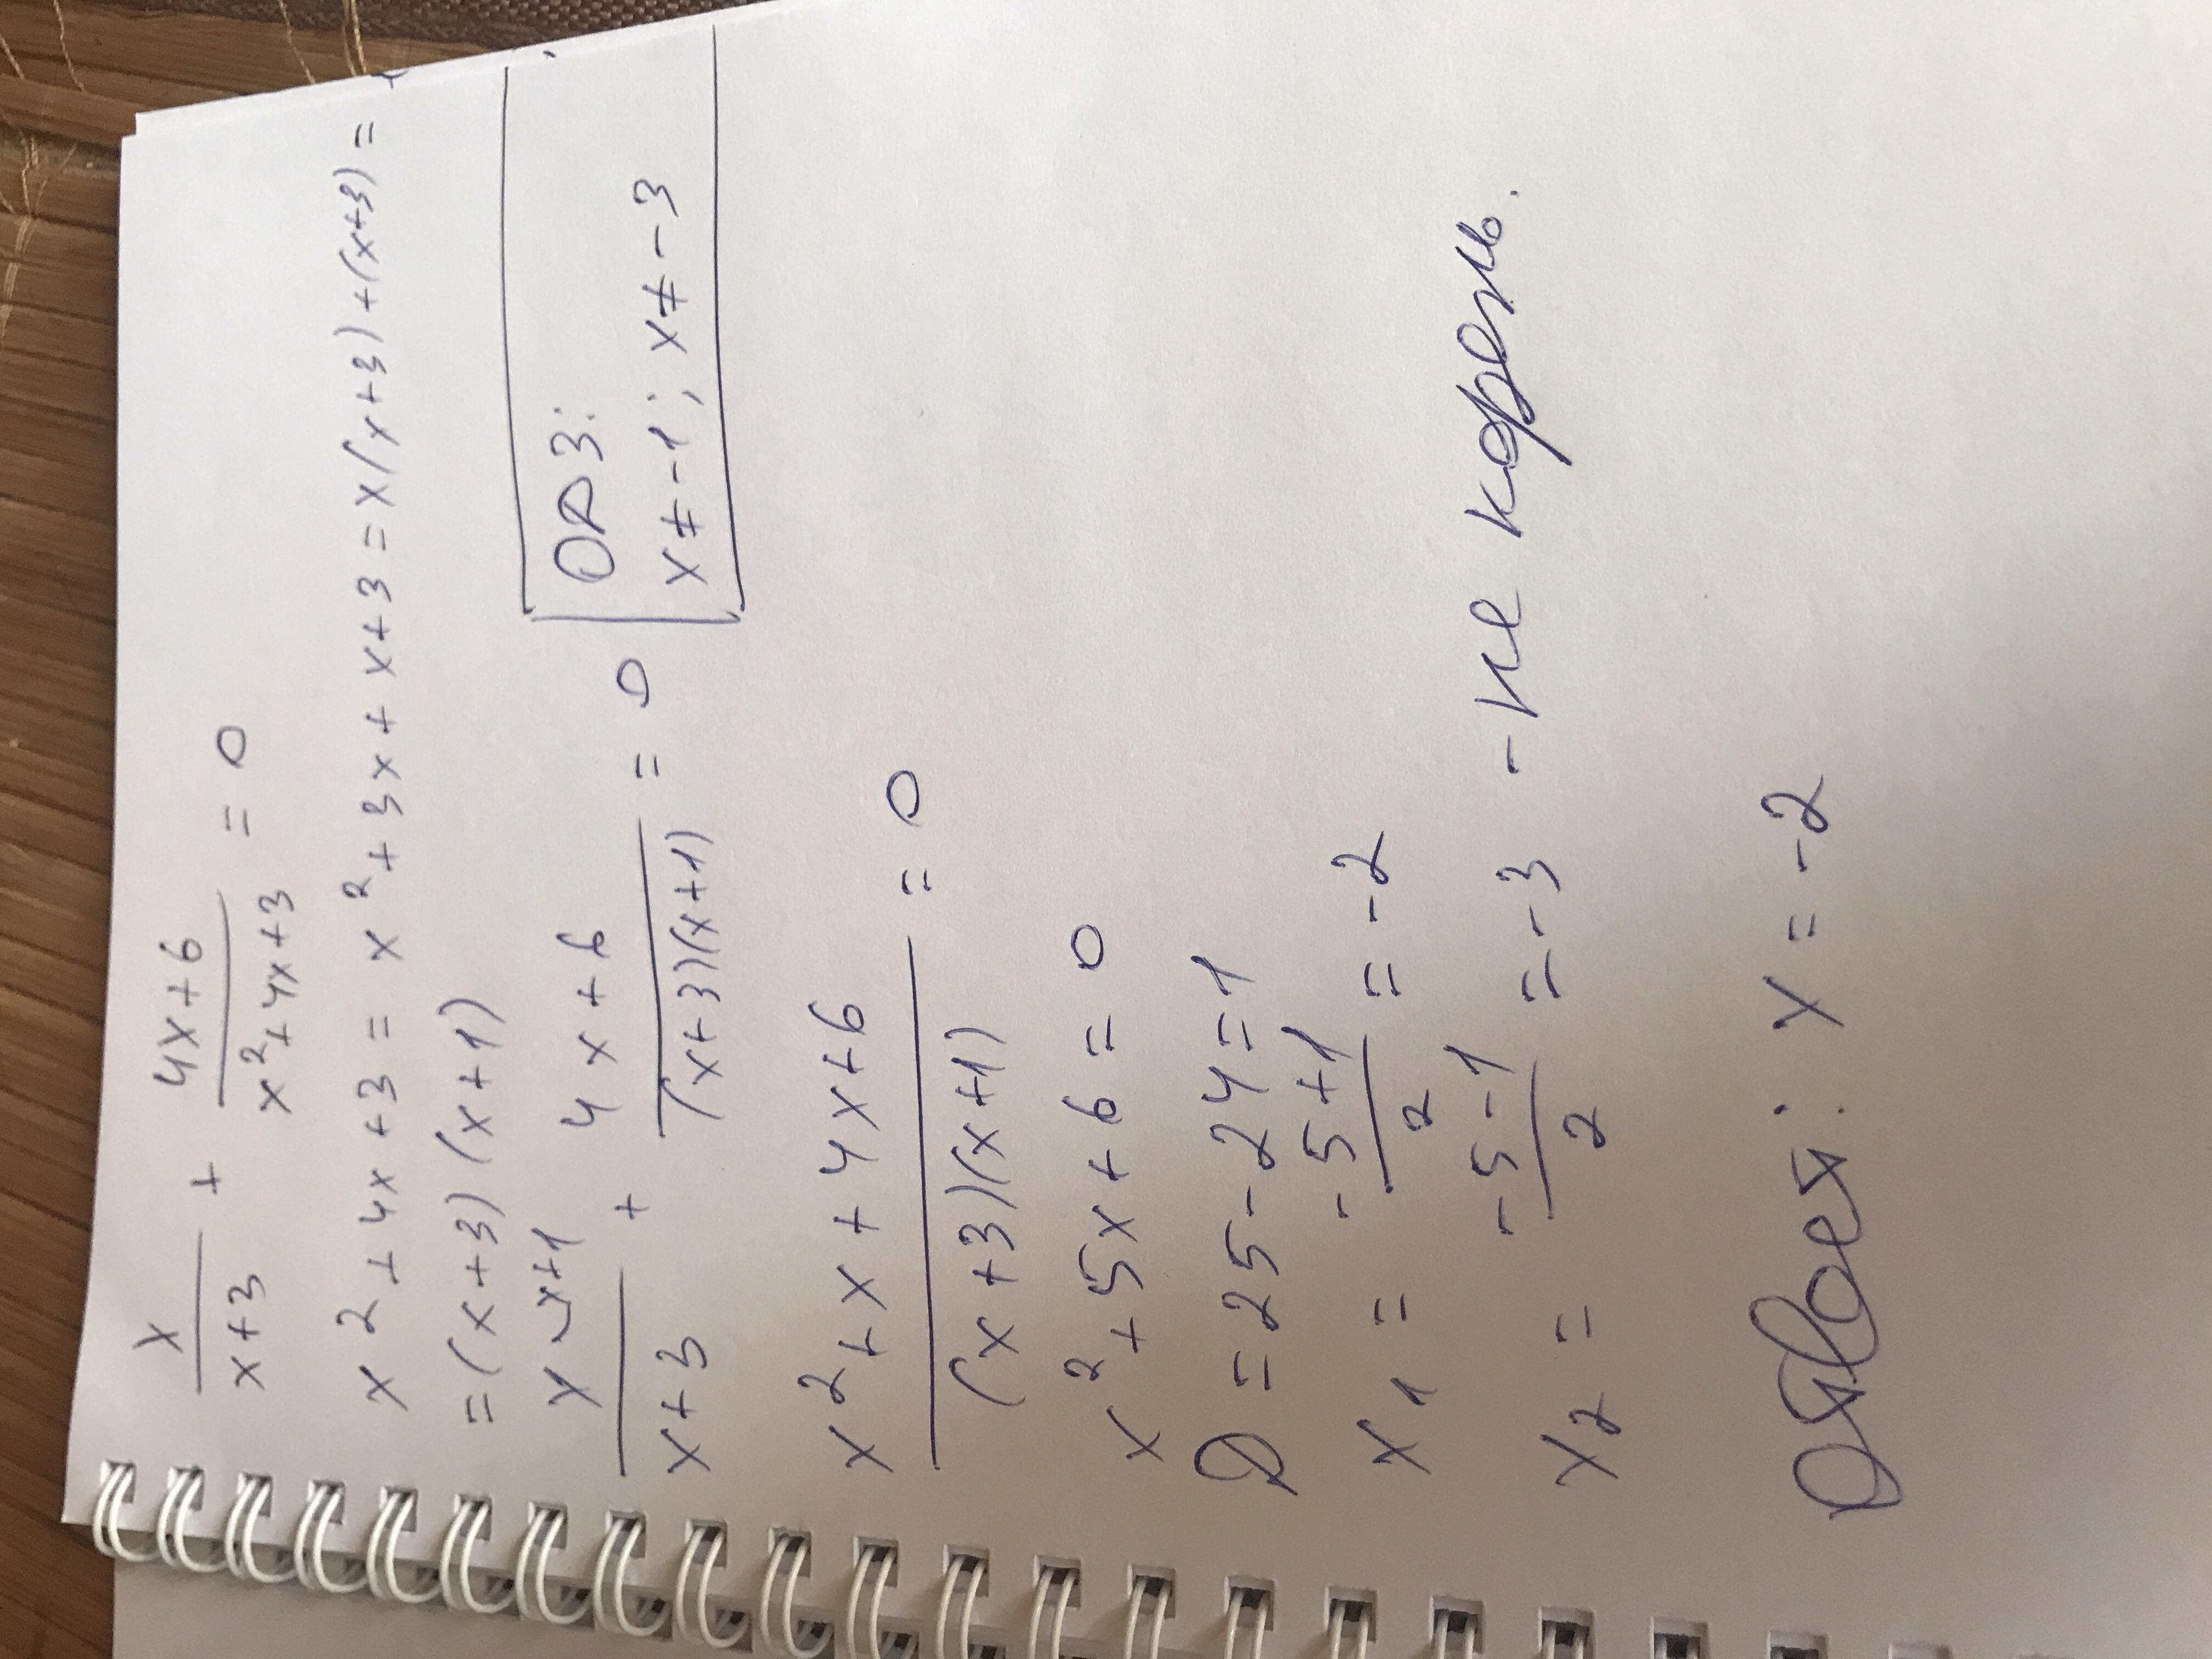 x/(x+3) + (4x+6)/(x²+4x+3) = 0
x² + 4x + 3 = x² + 3x + x + 3 = x(x+3) + (x+3) =
= (x+3)(x+1)
x^(x+1)/(x+3) + (4x+6)/((x+3)(x+1)) = 0
ОДЗ:
x ≠ -1; x ≠ -3
(x² + x + 4x + 6)/((x+3)(x+1)) = 0
x² + 5x + 6 = 0
D = 25 - 24 = 1
x₁ = (-5+1)/2 = -2
x₂ = (-5-1)/2 = -3 - не корень.
Ответ: x = -2